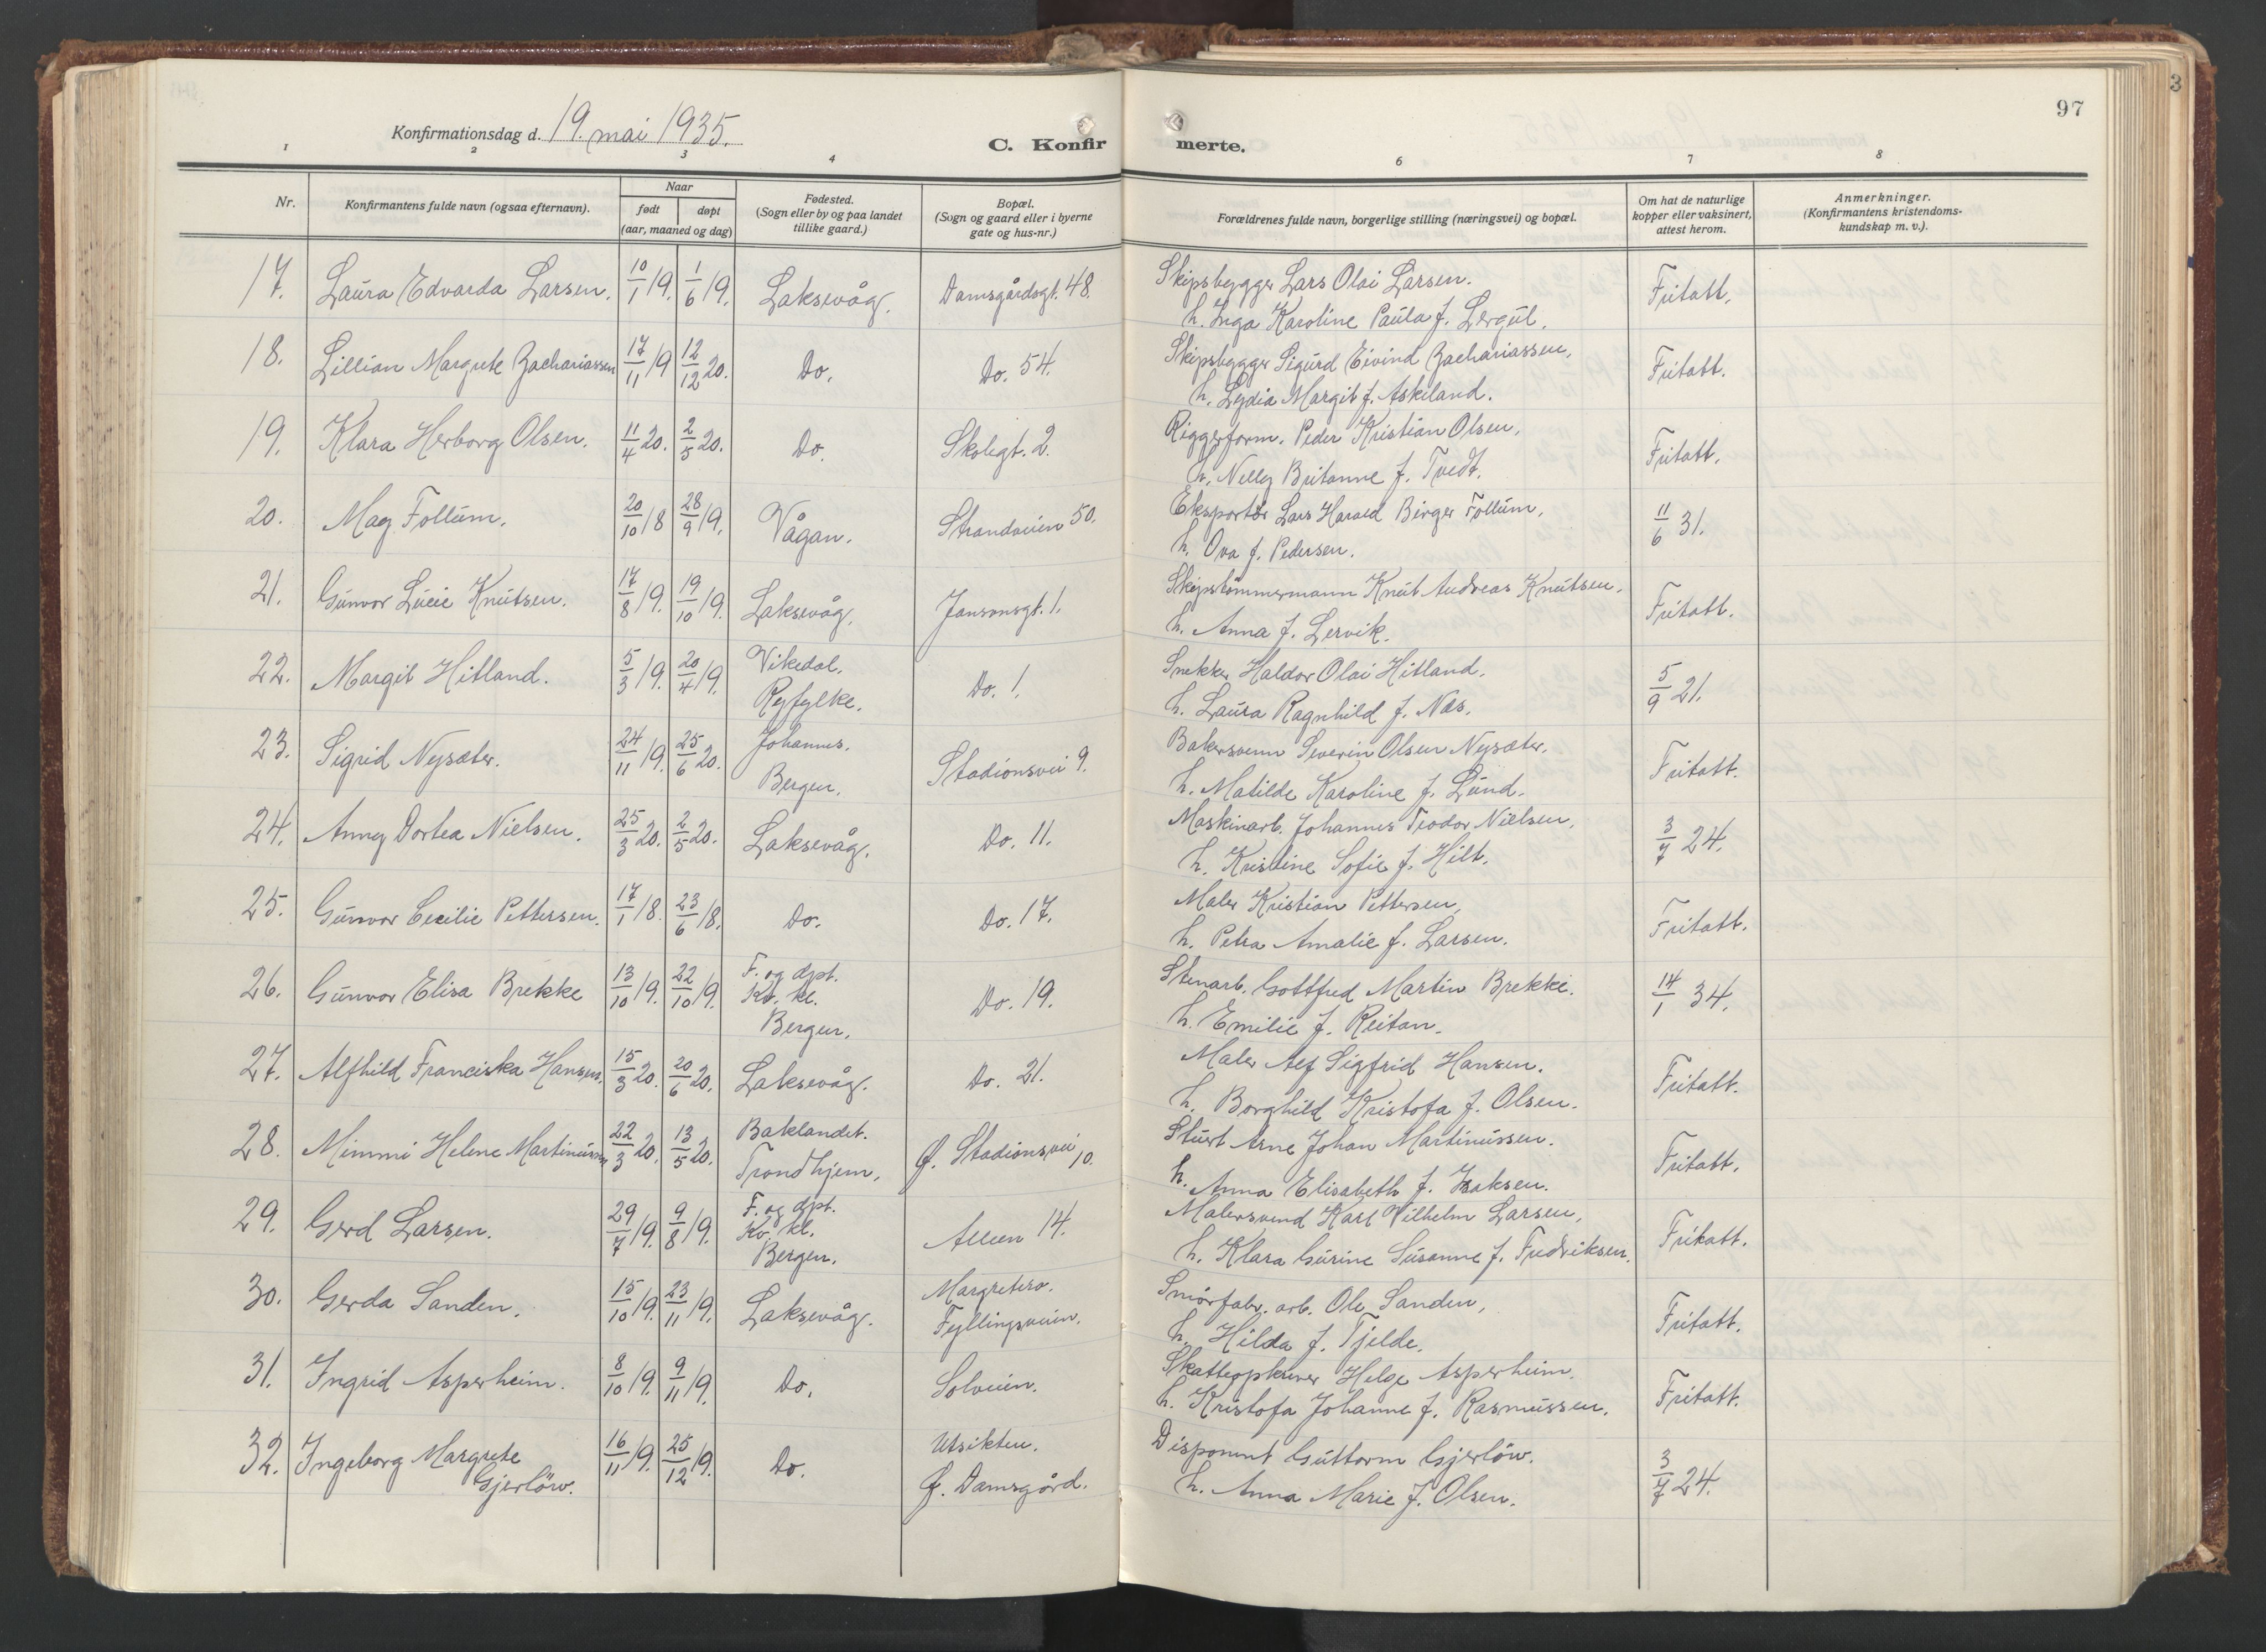 97
3
Konfirmationsdag d. 19. mai 1935.
C. Konfir merte.
1 2 3 4 6 7 8
Nr.
Konfirmantens fulde navn (ogsaa efternavn).
Naar
født døpt
(aar, maaned og dag)
Fødested.
(Sogn eller by og paa landet
tillike gaard.)
Bopæl.
(Sogn og gaard eller i byerne
gate og hus-nr.)
Forældrenes fulde navn, borgerlige stilling (næringsvei) og bopæl.
Om hat de naturlige
kopper eller vaksinert,
attest herom.
Anmerkninger.
(Konfirmantens kristendoms-
kundskap m. v.).
17. Laura Edvarda Larsen. 10/1 19. 1/6 19. Laksevåg. Damsgårdsgt. 48. Skipsbygger Lars Olai Larsen. Fritatt.
h. Inga Karoline Paula f. Lergul.
18. Lillian Margrete Zachariassen 17/11 19 12/12 20. Do. Do. 54. Skipsbygger Sigurd Eivind Zachariassen, Fritatt.
h. Lydia Margit f. Askeland.
19. Klara Herborg Olsen. 11/4 20. 2/5 20. Do. Skolegt. 2. Riggerform. Peder Kristian Olsen, Fritatt.
h. Nelly Britanne f. Tvedt.
20. May Follum. 20/10 18 28/9 19. Vågan. Strandveien 50. Eksportör Lars Harald Birger Follum, 11/6 31.
h. Ova f. Pedersen.
21. Gunvor Lucie Knutsen. 17/8 19. 19/10 19. Laksevåg. Jansonsgt. 1. Skipstömmermann Knut Andreas Knutsen, Fritatt.
h. Anna f. Lervik.
22. Margit Hitland. 5/3 19. 20/4 19. Vikedal, Do. 1. Snekker Haldor Olai Hitland, 5/9 21.
Ryfylke. h. Laura Ragnhild f. Nes.
23. Sigrid Nysæter. 24/11 19. 25/6 20. Johannes. Stadionsvei 9. Bakersvenn Severin Olsen Nysæter. Fritatt.
Bergen. h. Matilde Karoline f. Lund.
24. Anny Dortea Nielsen. 25/3 20. 2/5 20. Laksevåg. Do. 11. Maskinarb. Johannes Teodor Nielsen, 3/7 24.
h. Kristine Sofie f. Hilt.
25. Gunvor Cecilie Pettersen. 17/1 18. 23/6 18. Do. Do. 17. Maler Kristian Pettersen, Fritatt.
h. Petra Amalie f. Larsen.
26. Gunvor Elisa Brekke 13/10 19. 22/10 19. F. og dpt. Kv. kl. Do. 19. Stenarb. Gottfred Martin Brekke. 14/1 34.
Bergen. h. Emilie f. Reitan.
27. Alfhild Franciska Hansen. 15/3 20. 20/6 20. Laksevåg. Do. 21. Maler Alf Sigfrid Hansen. Fritatt.
h. Borghild Kristofa f. Olsen.
28. Mimmi Helene Martinussen 22/3 20. 13/5 20. Baklandet. Ø. Stadionsvei 10. Stuert Arne Johan Martinussen. Fritatt.
Trondhjem. h. Anna Elisabeth f. Isaksen.
29. Gerd Larsen. 29/7 19. 9/8 19. F. og dpt. Kv. kl. Alleen 14. Malersvend Karl Vilhelm Larsen, Fritatt.
Bergen. h. Klara Gurine Susanne f. Fredriksen.
30. Gerda Sanden. 15/10 19. 23/11 19. Laksevåg. Margretero. Smörfabr. arb. Ole Sanden, Fritatt.
Fyllingsveien. h. Hilda f. Tjelde.
31. Ingrid Asperheim. 8/10 19. 9/11 19. Do. Solveien. Skatteopkrever Helge Asperheim. Fritatt.
h. Kristofa Johanne f. Rasmussen.
32. Ingeborg Margrete 16/11 19. 25/12 19. Do. Utsikten. Disponent Guttorm Gjerlöw. 3/7 24.
Gjerlöw. Ø. Damsgård. h. Anna Marie f. Olsen.